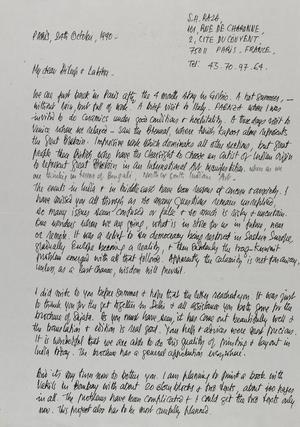 S.H. RAZA,
101, RUE DE CHARONNE,
2, CITÉ DU COUVENT,
75011 PARIS - FRANCE.
Tel: 43-70-97-64.
PARIS, 24th October, 1990.
My dear
We are just back in Paris after the 4 month stay in Gorbio. A hot summer,
without rain, but full of work. A brief visit to Italy. FAENZA where I was
invited to do ceramics under good conditions & hospitality. A few days visit to
Venice where we relaxed - saw the Biennal, where Anish Kapoor alone represents
the Great Britain. Impressive work which dominates all other sections, but great
people these British who have the foresight to choose an artist of Indian origin
to represent Great Britain in an International Art manifestation, when as we
are thinking in terms of Bengale, North or South Indian Art.
The events in India & in middle east have been reasons of concern everybody. I
have missed you all through as so many questions remain unsolved,
so many issues seem confused or false & so much is risky & uncertain.
One wonders where we are going, what is in store for us in future, near
or remote. It was a relief to see democracy being restored in Eastern Europe,
gradually Europe becoming a reality, & then suddenly the Iraq-Kuwait
problem emerges with all that follows. Apparently the calamity is not far away,
unless, as a last chance, wisdom will prevail.
I did write to you before summer & hope that the letter reached you. It was just
to thank you for the get together in Delhi & all assistance you both gave for the
brochure of Sapata. As you must have seen, it has come out beautifully well &
the translation & edition is real good. Your help & advices were most precious.
It is wonderful that we are able to do this quality of printing & layout in
India today. The brochure has a general approbation everywhere.
And it's very turn now to bother you. I am planning to print a book with
Vakils in Bombay with about 20 colour blocks & two texts, about 100 pages
in all. The problems have been complicated & I could get the two texts only
now. This project also has to be most carefully planned.